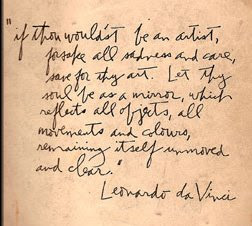 "if thou would'st be an artist,
forsake all sadness and care,
save for thy art. Let thy
soul be as a mirror, which
reflects all objects, all
movements and colours,
remaining itself unmoved
and clear."
Leonardo da Vinci